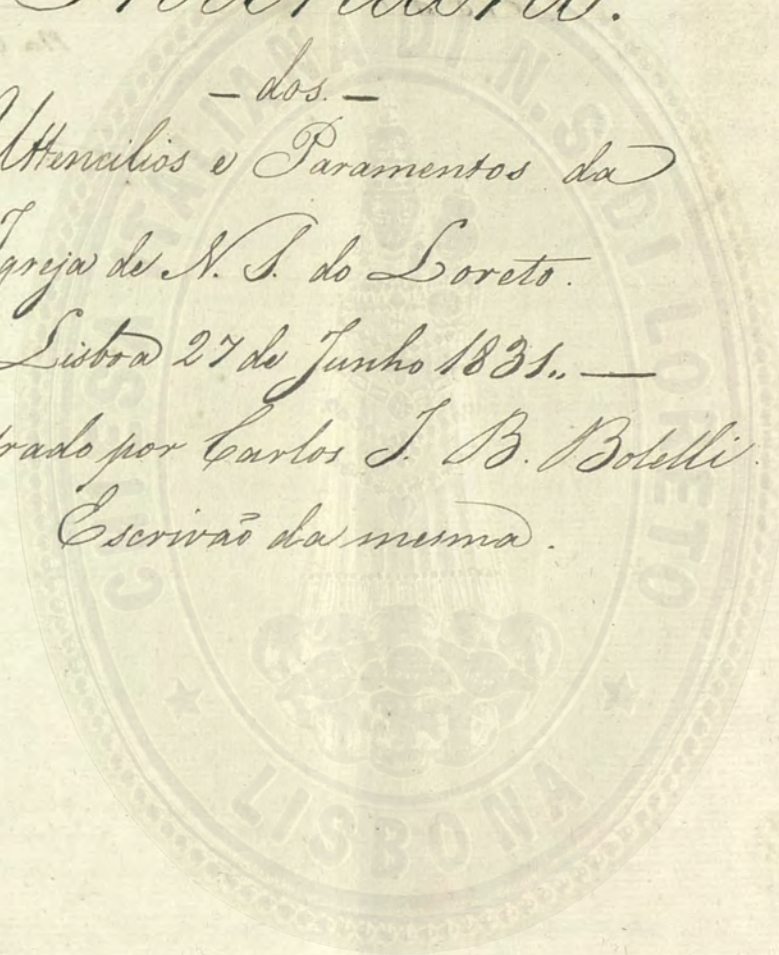 Inventario.
— dos. —
Uttencilios e Paramentos da
Igreja de N. S. do Loreto.
Lisboa 27 de Junho 1831.. —
trado por Carlos J. B. Botelli.
Escrivaõ da mesma.
CHIESA ITALIANA DI N. S. DI LORETO
LISBONA